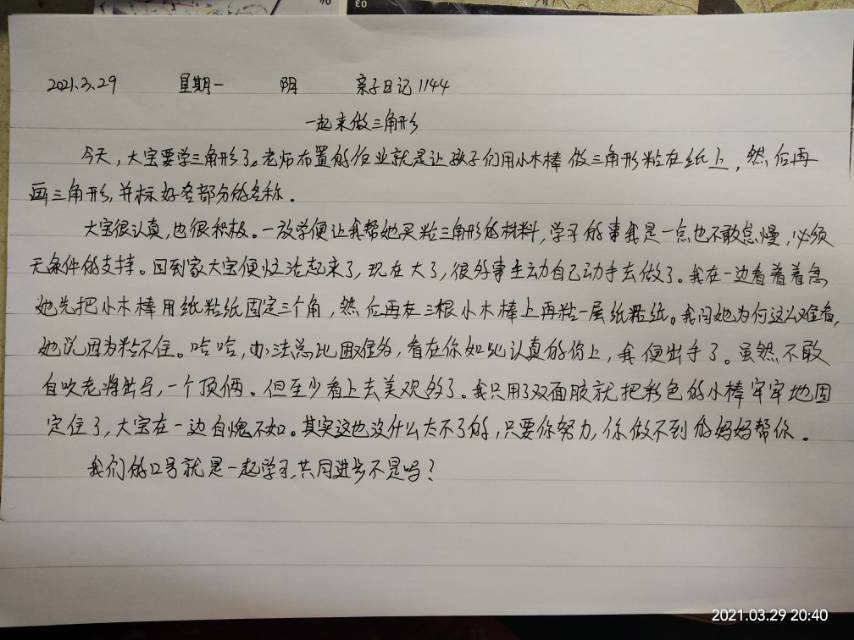 2021.3.29 星期一 阴 亲子日记1144
一起来做三角形
今天，大宝要学三角形了。老师布置的作业就是让孩子们用小木棒做三角形粘在纸上，然后再
画三角形，并标好各部分的名称。
大宝很认真，也很积极。一放学便让我帮她买粘三角形的材料，学习的事我是一点也不敢怠慢，必须
无条件的支持。回到家大宝便忙活起来了，现在大了，很好事主动自己动手去做了。我在一边看着着急
她先把小木棒用纸粘纸固定三个角，然后再在三根小木棒上再粘一层纸粘纸。我问她为何这么难看，
她说因为粘不住。哈哈，办法总比困难多，看在你如此认真的份上，我便出手了。虽然不敢
自吹老将出马，一个顶俩。但至少看上去美观多了。我只用了双面胶就把彩色的小棒牢牢地固
定住了，大宝在一边自愧不如。其实这也没什么大不了的，只要你努力，你做不到的妈妈帮你。
我们的口号就是一起学习，共同进步不是吗？
2021.03.29 20:40